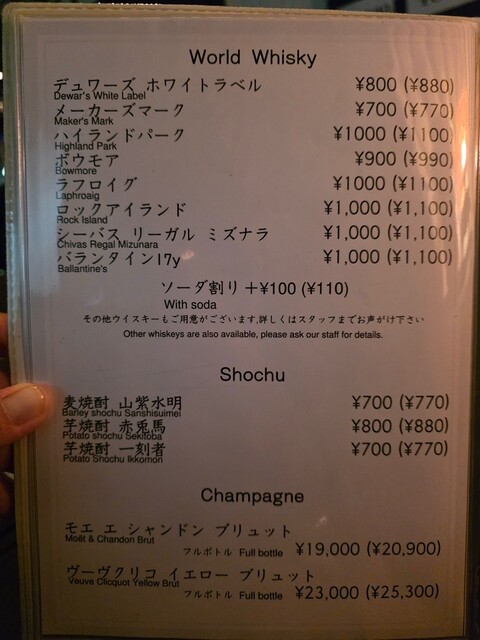 World Whisky
デュワーズ ホワイトラベル ¥800 (¥880)
Dewar's White Label
メーカーズマーク ¥700 (¥770)
Maker's Mark
ハイランドパーク ¥1000 (¥1100)
Highland Park
ボウモア ¥900 (¥990)
Bowmore
ラフロイグ ¥1000 (¥1100)
Laphroaig
ロックアイランド ¥1,000 (¥1,100)
Rock Island
シーバス リーガル ミズナラ ¥1,000 (¥1,100)
Chivas Regal Mizunara
バランタイン17y ¥1,000 (¥1,100)
Ballantine's
ソーダ割り +¥100 (¥110)
With soda
その他ウイスキーもご用意がございます,詳しくはスタッフまでお声がけ下さい
Other whiskeys are also available, please ask our staff for details.
Shochu
麦焼酎 山紫水明 ¥700 (¥770)
Barley shochu Sanshisuimei
芋焼酎 赤兎馬 ¥800 (¥880)
Potato shochu Sekitoba
芋焼酎 一刻者 ¥700 (¥770)
Potato Shochu Ikkomon
Champagne
モエ エ シャンドン ブリュット
Moët & Chandon Brut
フルボトル Full bottle ¥19,000 (¥20,900)
ヴーヴクリコ イエロー ブリュット
Veuve Clicquot Yellow Brut
フルボトル Full bottle ¥23,000 (¥25,300)